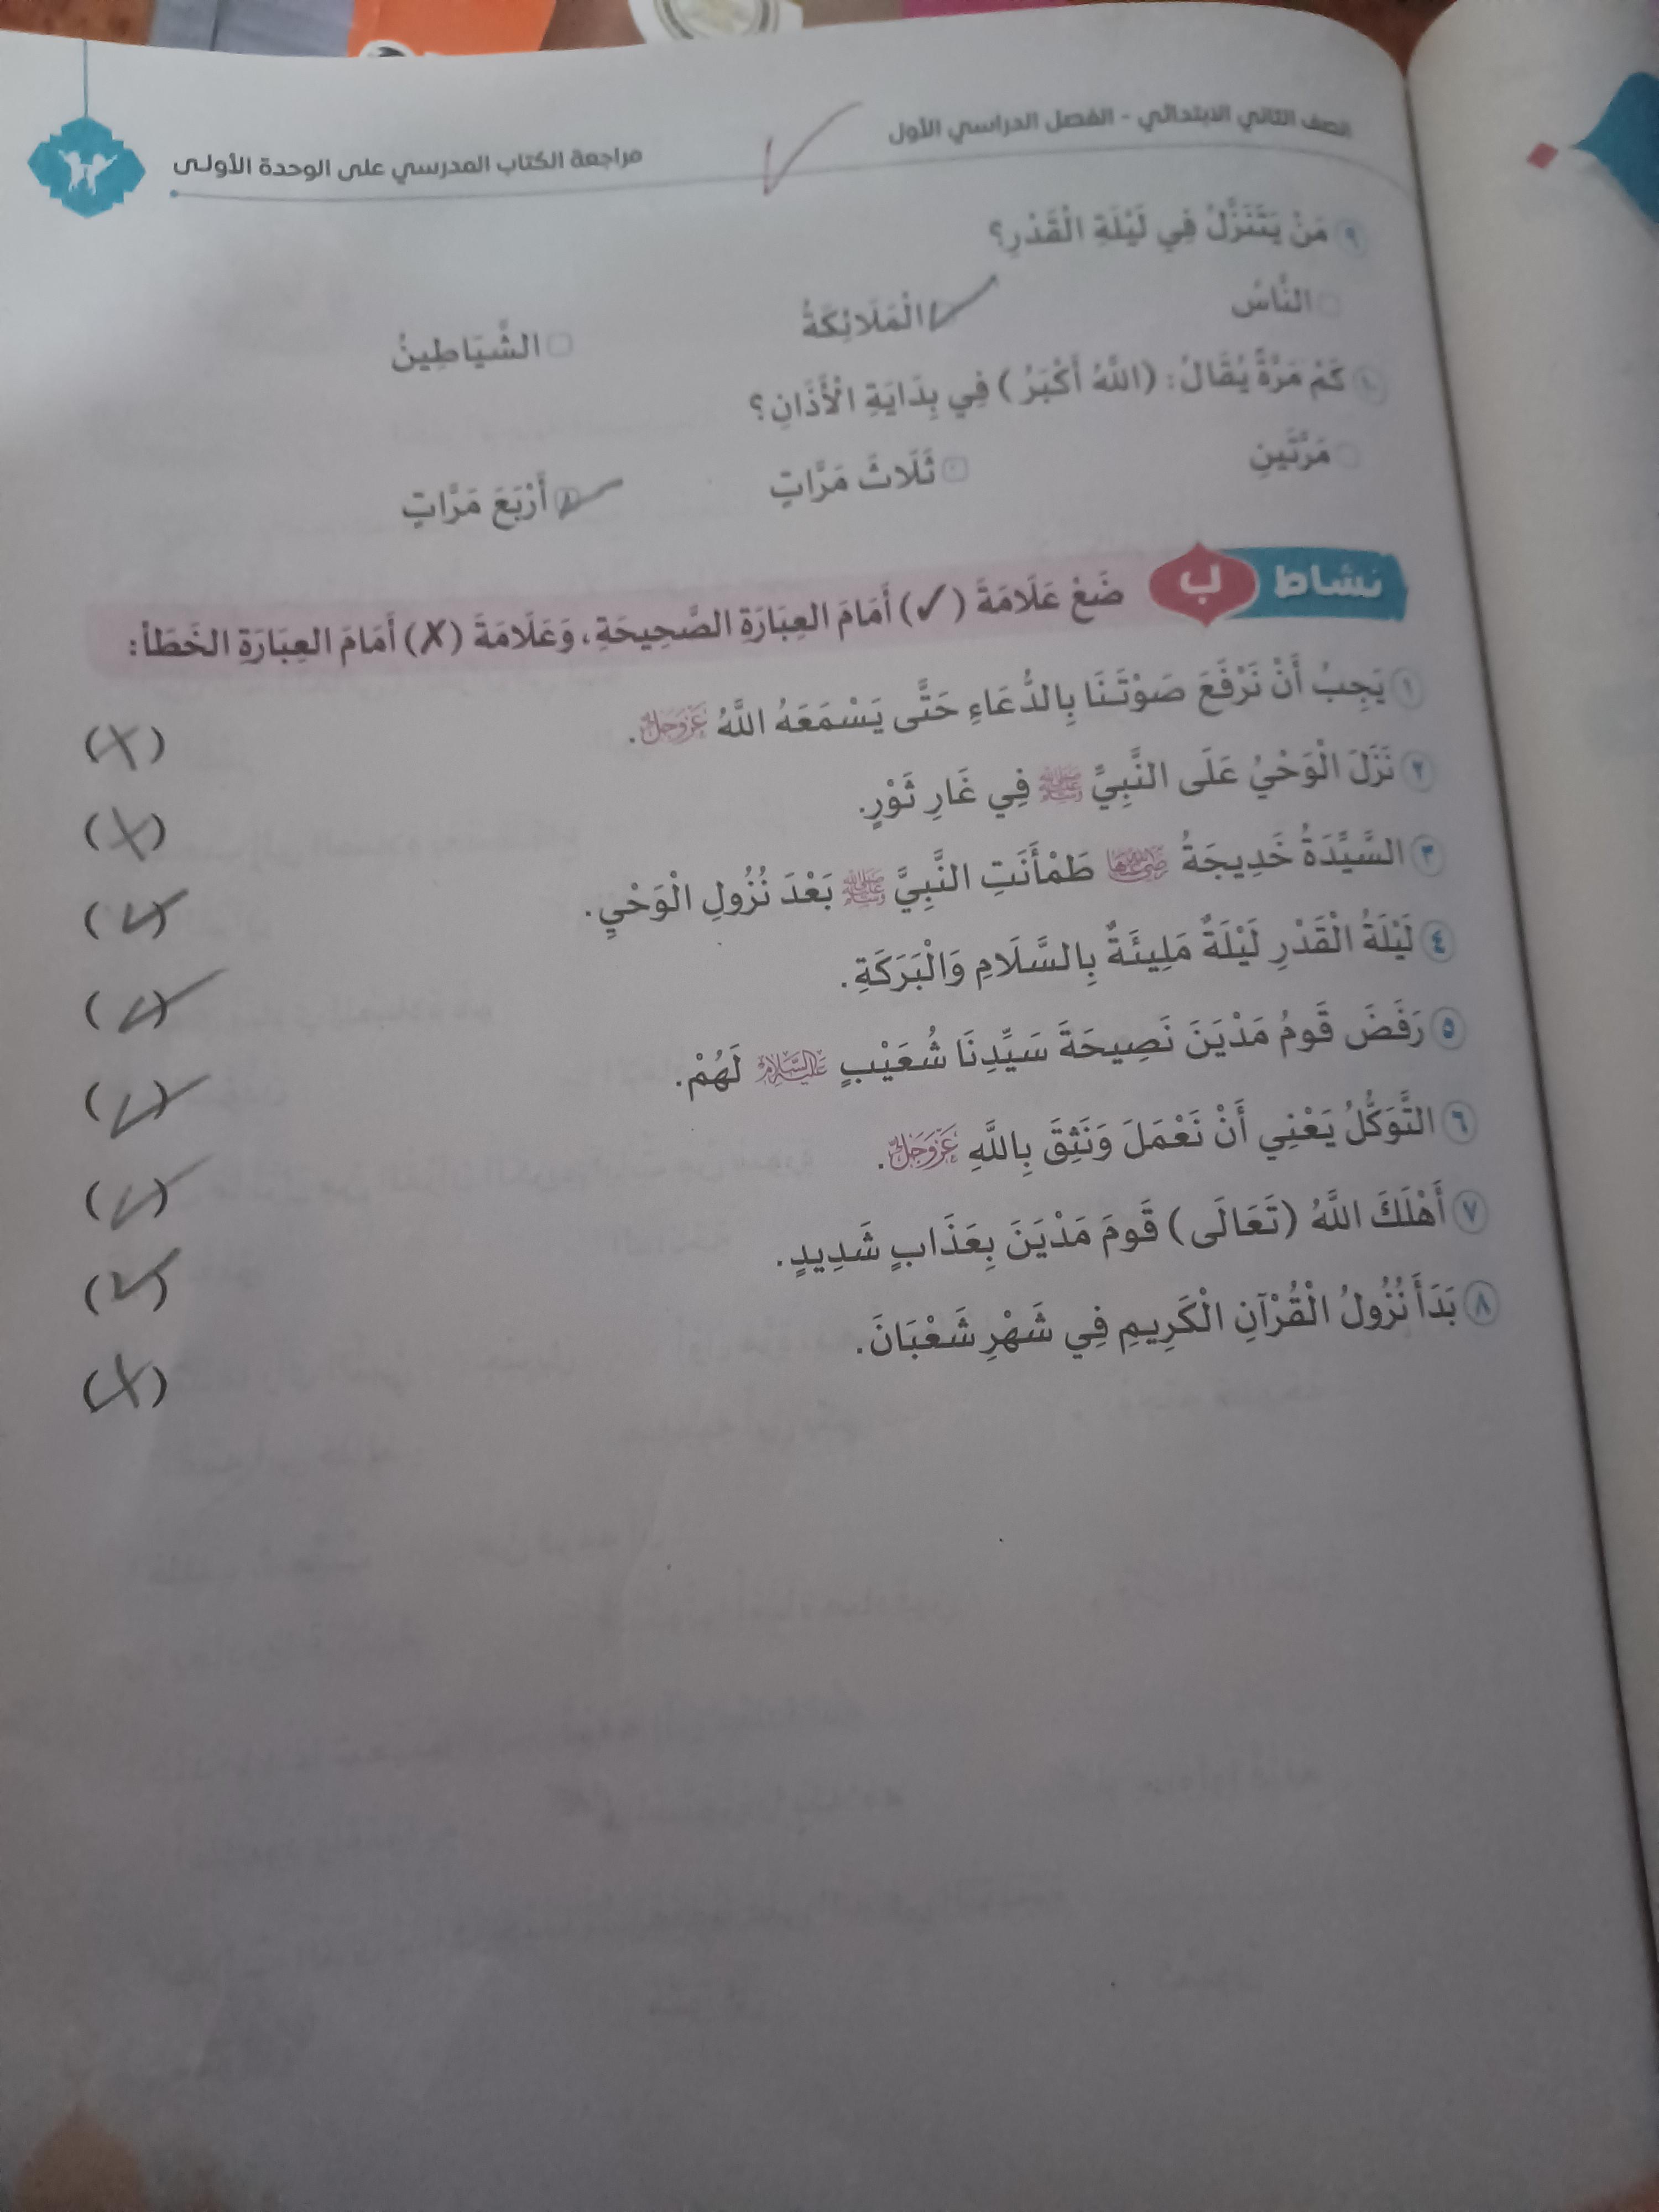 الصف الثاني الابتدائي - الفصل الدراسي الأول
مراجعة الكتاب المدرسي على الوحدة الأولى
٩ مَنْ يَتَنَزَّلُ فِي لَيْلَةِ الْقَدْرِ؟
النَّاسُ الْمَلَائِكَةُ الشَّيَاطِينُ
١٠ كَمْ مَرَّةً يُقَالُ: (اللَّهُ أَكْبَرُ) فِي بِدَايَةِ الْأَذَانِ؟
مَرَّتَينِ ثَلَاثَ مَرَّاتٍ أَرْبَعَ مَرَّاتٍ
نشاط ب ضَعْ عَلَامَةَ (✓) أَمَامَ العِبَارَةِ الصَّحِيحَةِ، وَعَلَامَةَ (✗) أَمَامَ العِبَارَةِ الخَطَأ:
١ يَجِبُ أَنْ نَرْفَعَ صَوْتَنَا بِالدُّعَاءِ حَتَّى يَسْمَعَهُ اللَّهُ عَزَّوَجَلَّ. (✗)
٢ نَزَلَ الْوَحْيُ عَلَى النَّبِيِّ ﷺ فِي غَارِ ثَوْرٍ. (✗)
٣ السَّيِّدَةُ خَدِيجَةُ رَضِيَ اللَّهُ عَنْهَا طَمْأَنَتِ النَّبِيَّ ﷺ بَعْدَ نُزُولِ الْوَحْيِ. (✓)
٤ لَيْلَةُ الْقَدْرِ لَيْلَةٌ مَلِيئَةٌ بِالسَّلَامِ وَالْبَرَكَةِ. (✓)
٥ رَفَضَ قَومُ مَدْيَنَ نَصِيحَةَ سَيِّدِنَا شُعَيْبٍ عَلَيْهِ السَّلَامُ لَهُمْ. (✓)
٦ التَّوَكُّلُ يَعْنِي أَنْ نَعْمَلَ وَنَثِقَ بِاللَّهِ عَزَّوَجَلَّ. (✓)
٧ أَهْلَكَ اللَّهُ (تَعَالَى) قَومَ مَدْيَنَ بِعَذَابٍ شَدِيدٍ. (✓)
٨ بَدَأَ نُزُولُ الْقُرْآنِ الْكَرِيمِ فِي شَهْرِ شَعْبَانَ. (✗)